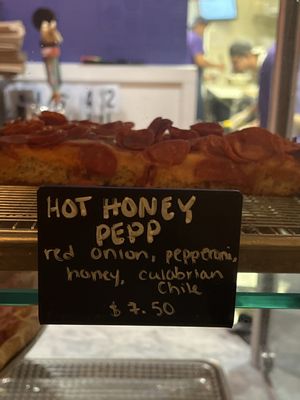 HOT HONEY
PEPP
red onion, pepperoni,
honey, calabrian
Chile
$7.50